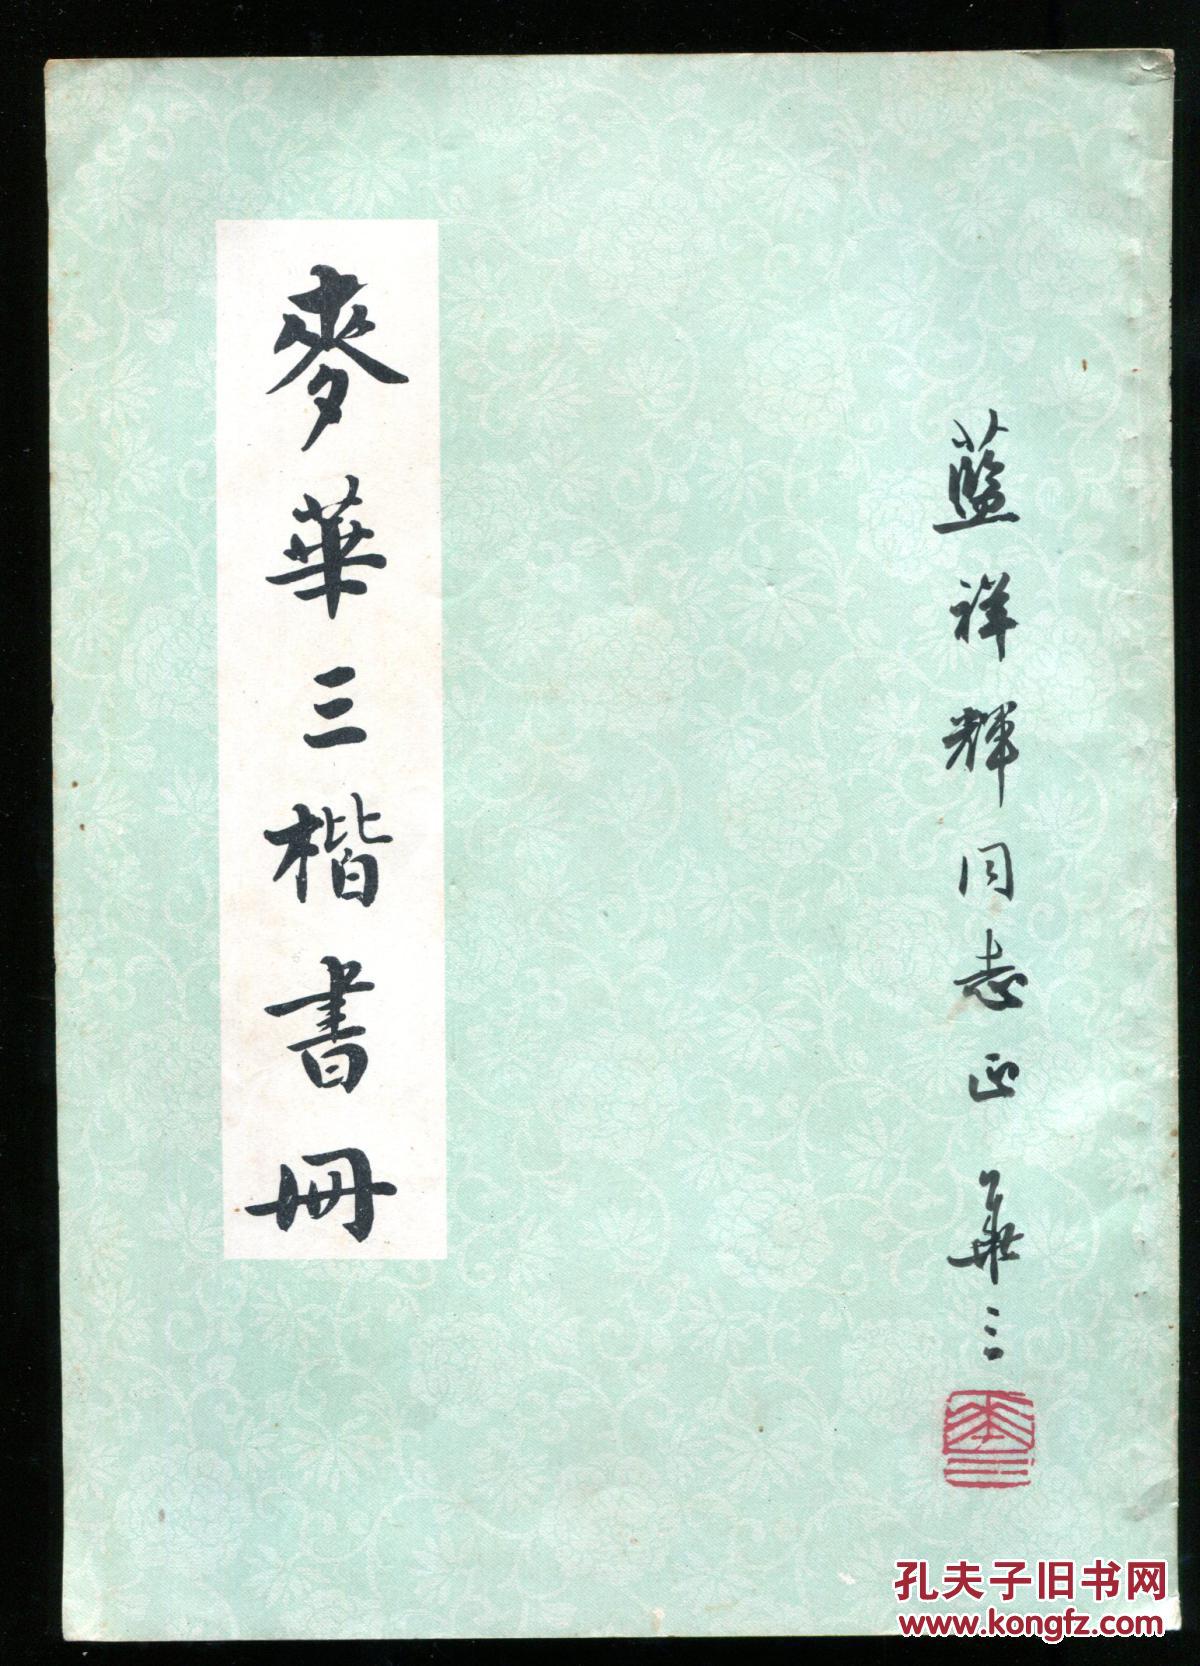 麥華三楷書冊
藍祥輝同志正 華三
華三
孔夫子旧书网
www.kongfz.com